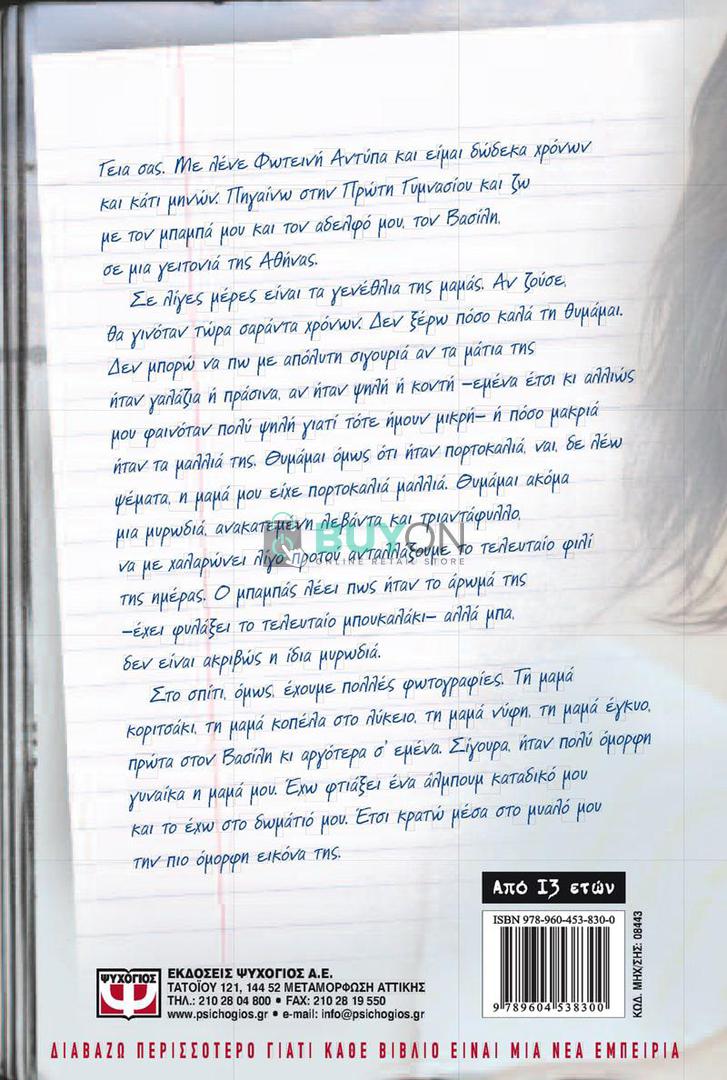 Γεια σας. Με λένε Φωτεινή Αντύπα και είμαι δώδεκα χρόνων
και κάτι μηνών. Πηγαίνω στην Πρώτη Γυμνασίου και ζω
με τον μπαμπά μου και τον αδελφό μου, τον Βασίλη,
σε μια γειτονιά της Αθήνας.
Σε λίγες μέρες είναι τα γενέθλια της μαμάς. Αν ζούσε,
θα γινόταν τώρα σαράντα χρόνων. Δεν ξέρω πόσο καλά τη θυμάμαι.
Δεν μπορώ να πω με απόλυτη σιγουριά αν τα μάτια της
ήταν γαλάζια ή πράσινα, αν ήταν ψηλή ή κοντή –εμένα έτσι κι αλλιώς
μου φαινόταν πολύ ψηλή γιατί τότε ήμουν μικρή– ή πόσο μακριά
ήταν τα μαλλιά της. Θυμάμαι όμως ότι ήταν πορτοκαλιά, ναι, δε λέω
ψέματα, η μαμά μου είχε πορτοκαλιά μαλλιά. Θυμάμαι ακόμα
μια μυρωδιά, ανακατεμένη λεβάντα και τριαντάφυλλο,
BUYON
ONLINE RETAIL STORE
να με χαλαρώνει λίγο προτού ανταλλάξουμε το τελευταίο φιλί
της ημέρας. Ο μπαμπάς λέει πως ήταν το άρωμά της
–έχει φυλάξει το τελευταίο μπουκαλάκι– αλλά μπα,
δεν είναι ακριβώς η ίδια μυρωδιά.
Στο σπίτι, όμως, έχουμε πολλές φωτογραφίες. Τη μαμά
κοριτσάκι, τη μαμά κοπέλα στο λύκειο, τη μαμά νύφη, τη μαμά έγκυο,
πρώτα στον Βασίλη κι αργότερα σ' εμένα. Σίγουρα, ήταν πολύ όμορφη
γυναίκα η μαμά μου. Έχω φτιάξει ένα άλμπουμ καταδικό μου
και το έχω στο δωμάτιό μου. Έτσι κρατώ μέσα στο μυαλό μου
την πιο όμορφη εικόνα της.
Από 13 ετών
ISBN 978-960-453-830-0
9 789604 538300
ΚΩΔ. ΜΗΧ/ΣΗΣ: 08443
ΨΥΧΟΓΙΟΣ
ΕΚΔΟΣΕΙΣ ΨΥΧΟΓΙΟΣ Α.Ε.
ΤΑΤΟΪΟΥ 121, 144 52 ΜΕΤΑΜΟΡΦΩΣΗ ΑΤΤΙΚΗΣ
ΤΗΛ.: 210 28 04 800 • FAX: 210 28 19 550
www.psichogios.gr • e-mail: info@psichogios.gr
ΔΙΑΒΑΖΩ ΠΕΡΙΣΣΟΤΕΡΟ ΓΙΑΤΙ ΚΑΘΕ ΒΙΒΛΙΟ ΕΙΝΑΙ ΜΙΑ ΝΕΑ ΕΜΠΕΙΡΙΑ